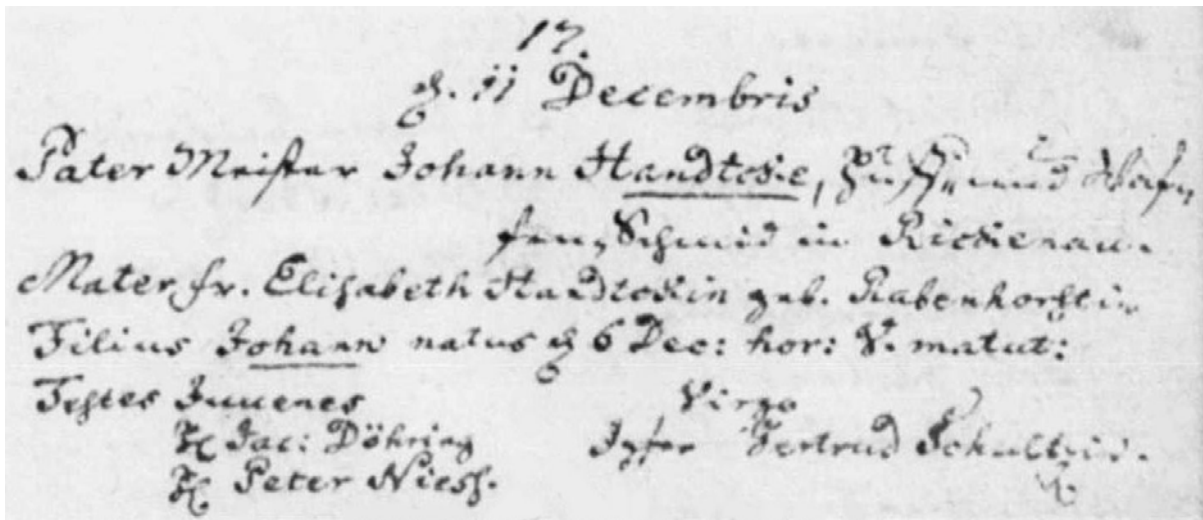 17.
d. 11 Decembris
Pater Meister Johann Handtoske, Huff- und Waf-
fen-Schmid in Rickenau.
Mater fr. Elisabeth Handtoskin geb. Rabenhorstin
Filius Johann natus d 6 Dec: hor: V. matut:
Testes Juvenes
H Jac: Döhring
H Peter Niess.
Virgo
Jgfer Gertrud Schultzin.